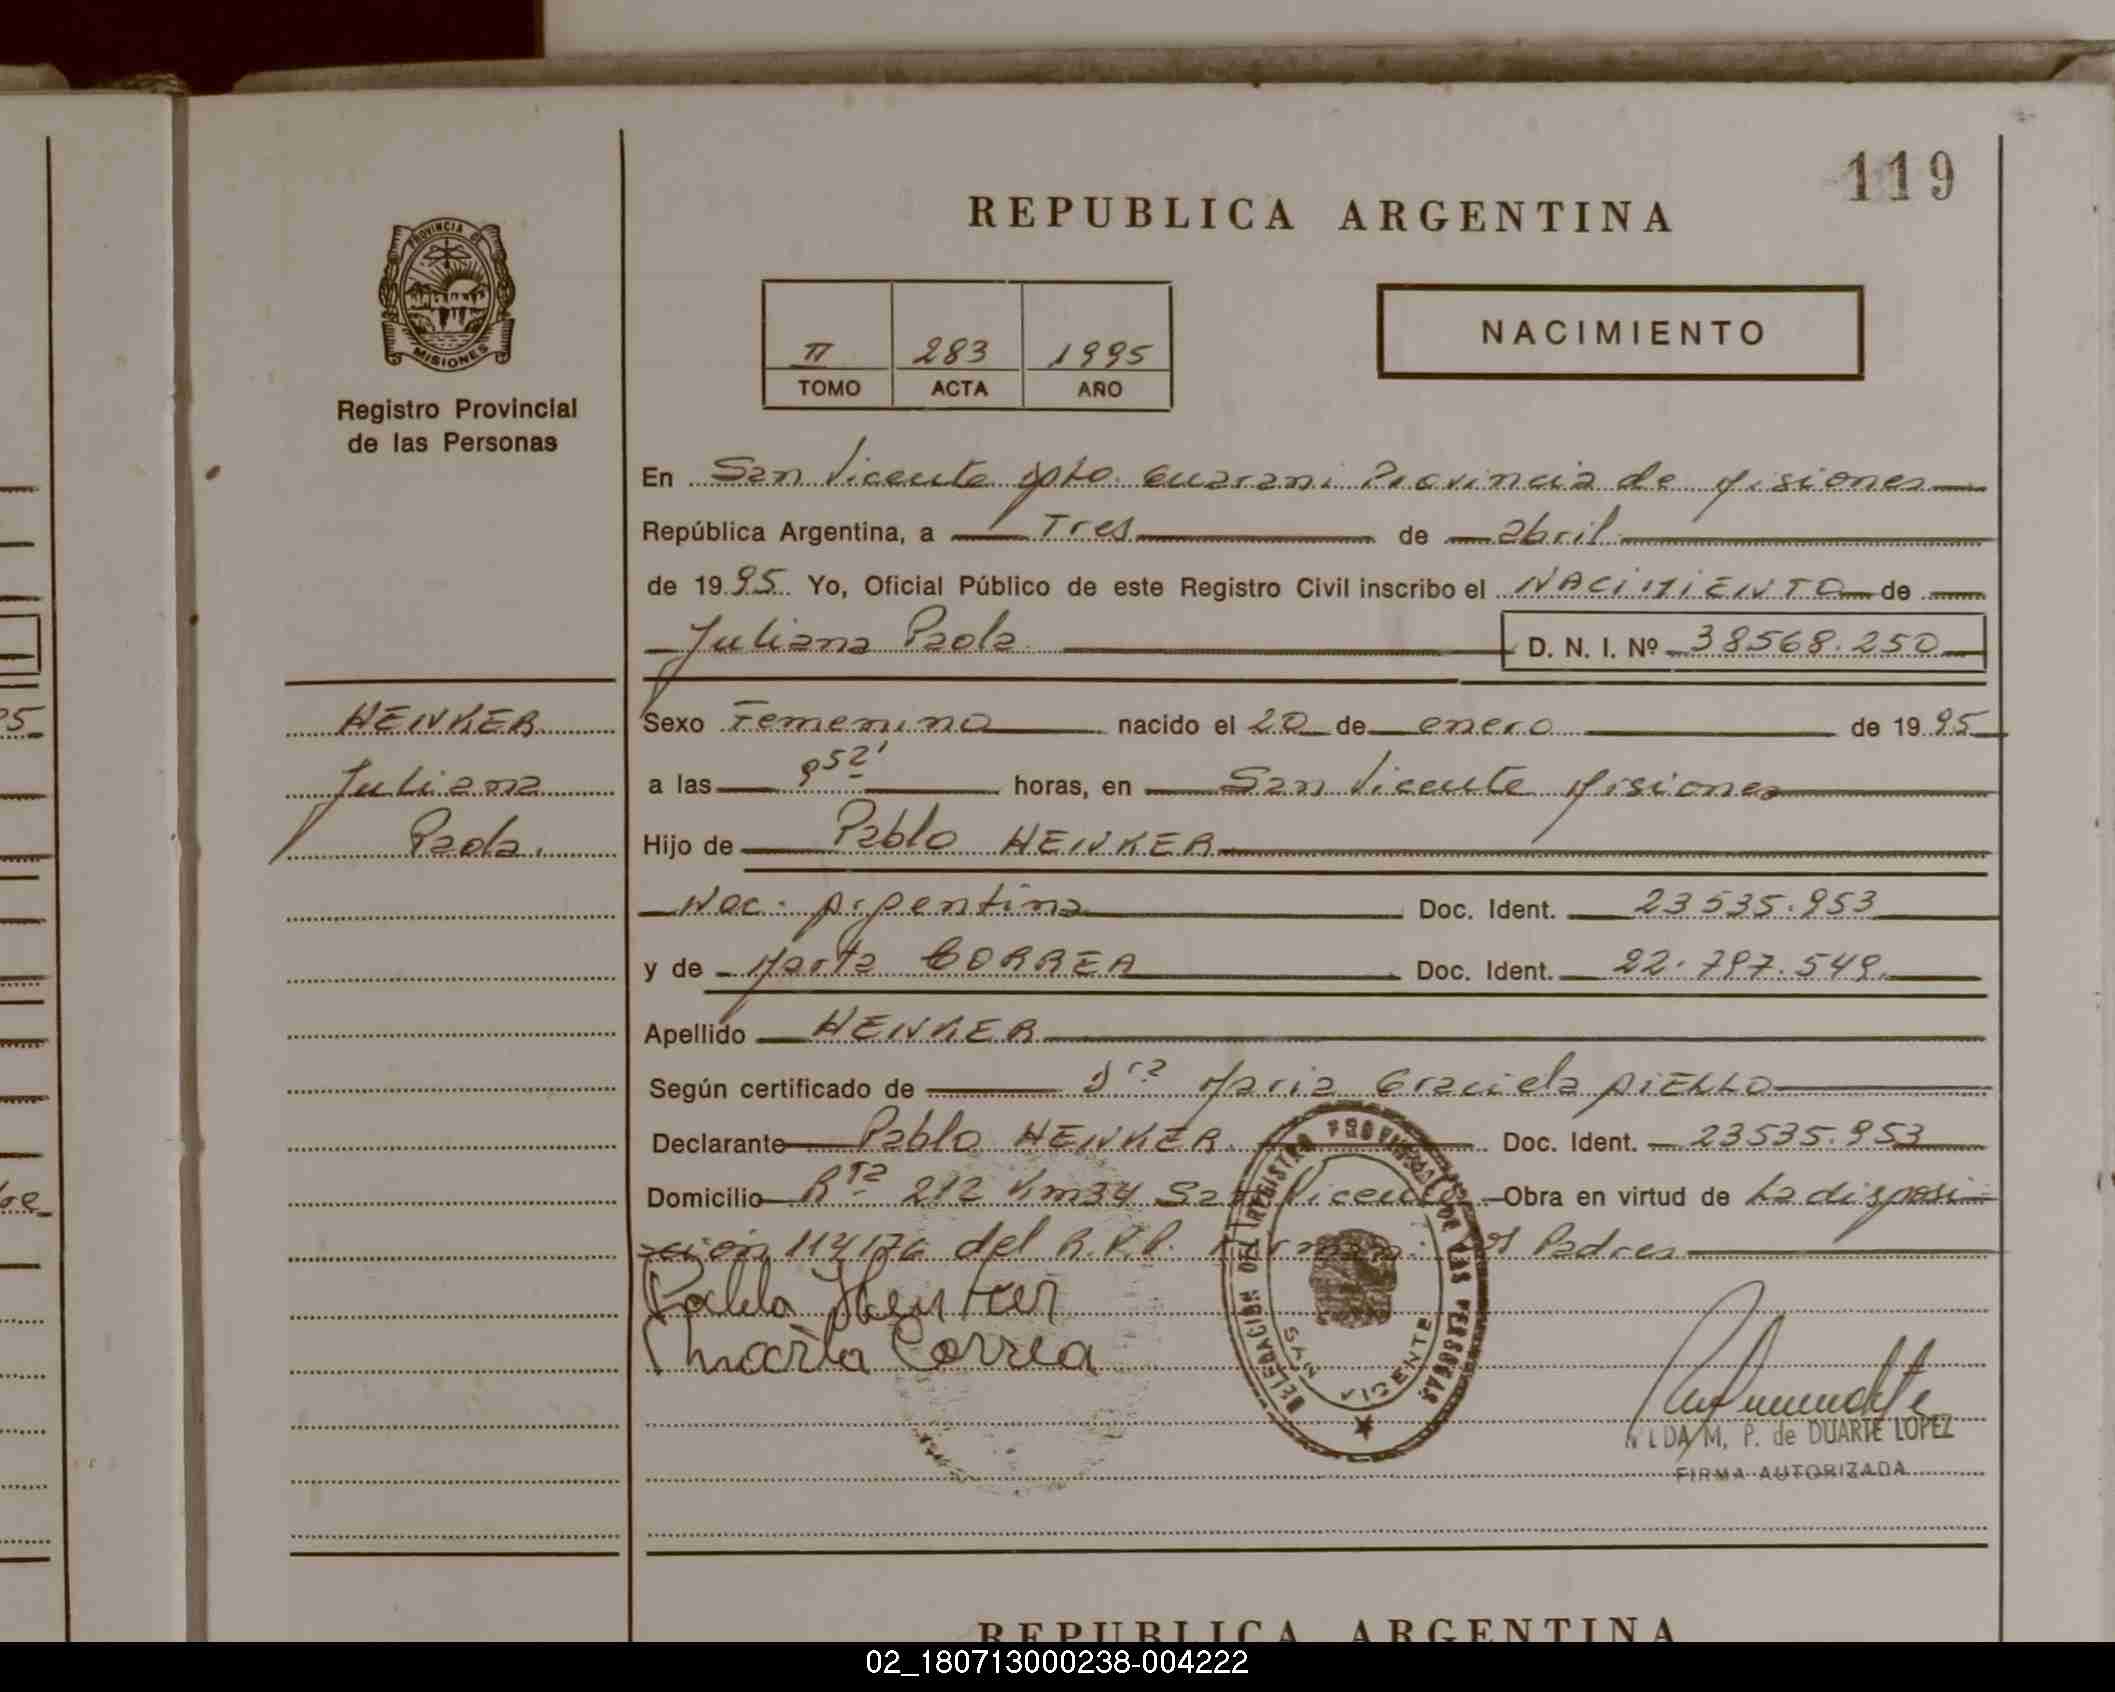 119
REPUBLICA ARGENTINA
PROVINCIA DE
MISIONES
Registro Provincial
de las Personas
II 283 1995
TOMO ACTA AÑO
NACIMIENTO
En San Vicente Dpto. Guarani Provincia de Misiones
República Argentina, a Tres de abril
de 1995. Yo, Oficial Público de este Registro Civil inscribo el NACIMIENTO de
Juliana Paola D. N. I. Nº 38568.250
HENKER
Juliana
Paola.
Sexo Femenino nacido el 20 de enero de 1995
a las 9 52' horas, en San Vicente Misiones
Hijo de Pablo HENKER
Nac. Argentina Doc. Ident. 23535.953
y de Marta CORREA Doc. Ident. 22.797.549
Apellido HENKER
Según certificado de Dra Maria Graciela AIELLO
Declarante Pablo HENKER. Doc. Ident. 23535.953
Domicilio Rta 212 Km 34 San Vicente Obra en virtud de La disposi-
cion 114/76 del R.P.P. Padres
Pablo Henker
Marta Correa
DELEGACION DEL REGISTRO PROVINCIAL DE LAS PERSONAS
SAN VICENTE
NILDA M. P. de DUARTE LOPEZ
FIRMA AUTORIZADA
REPUBLICA ARGENTINA
02_180713000238-004222